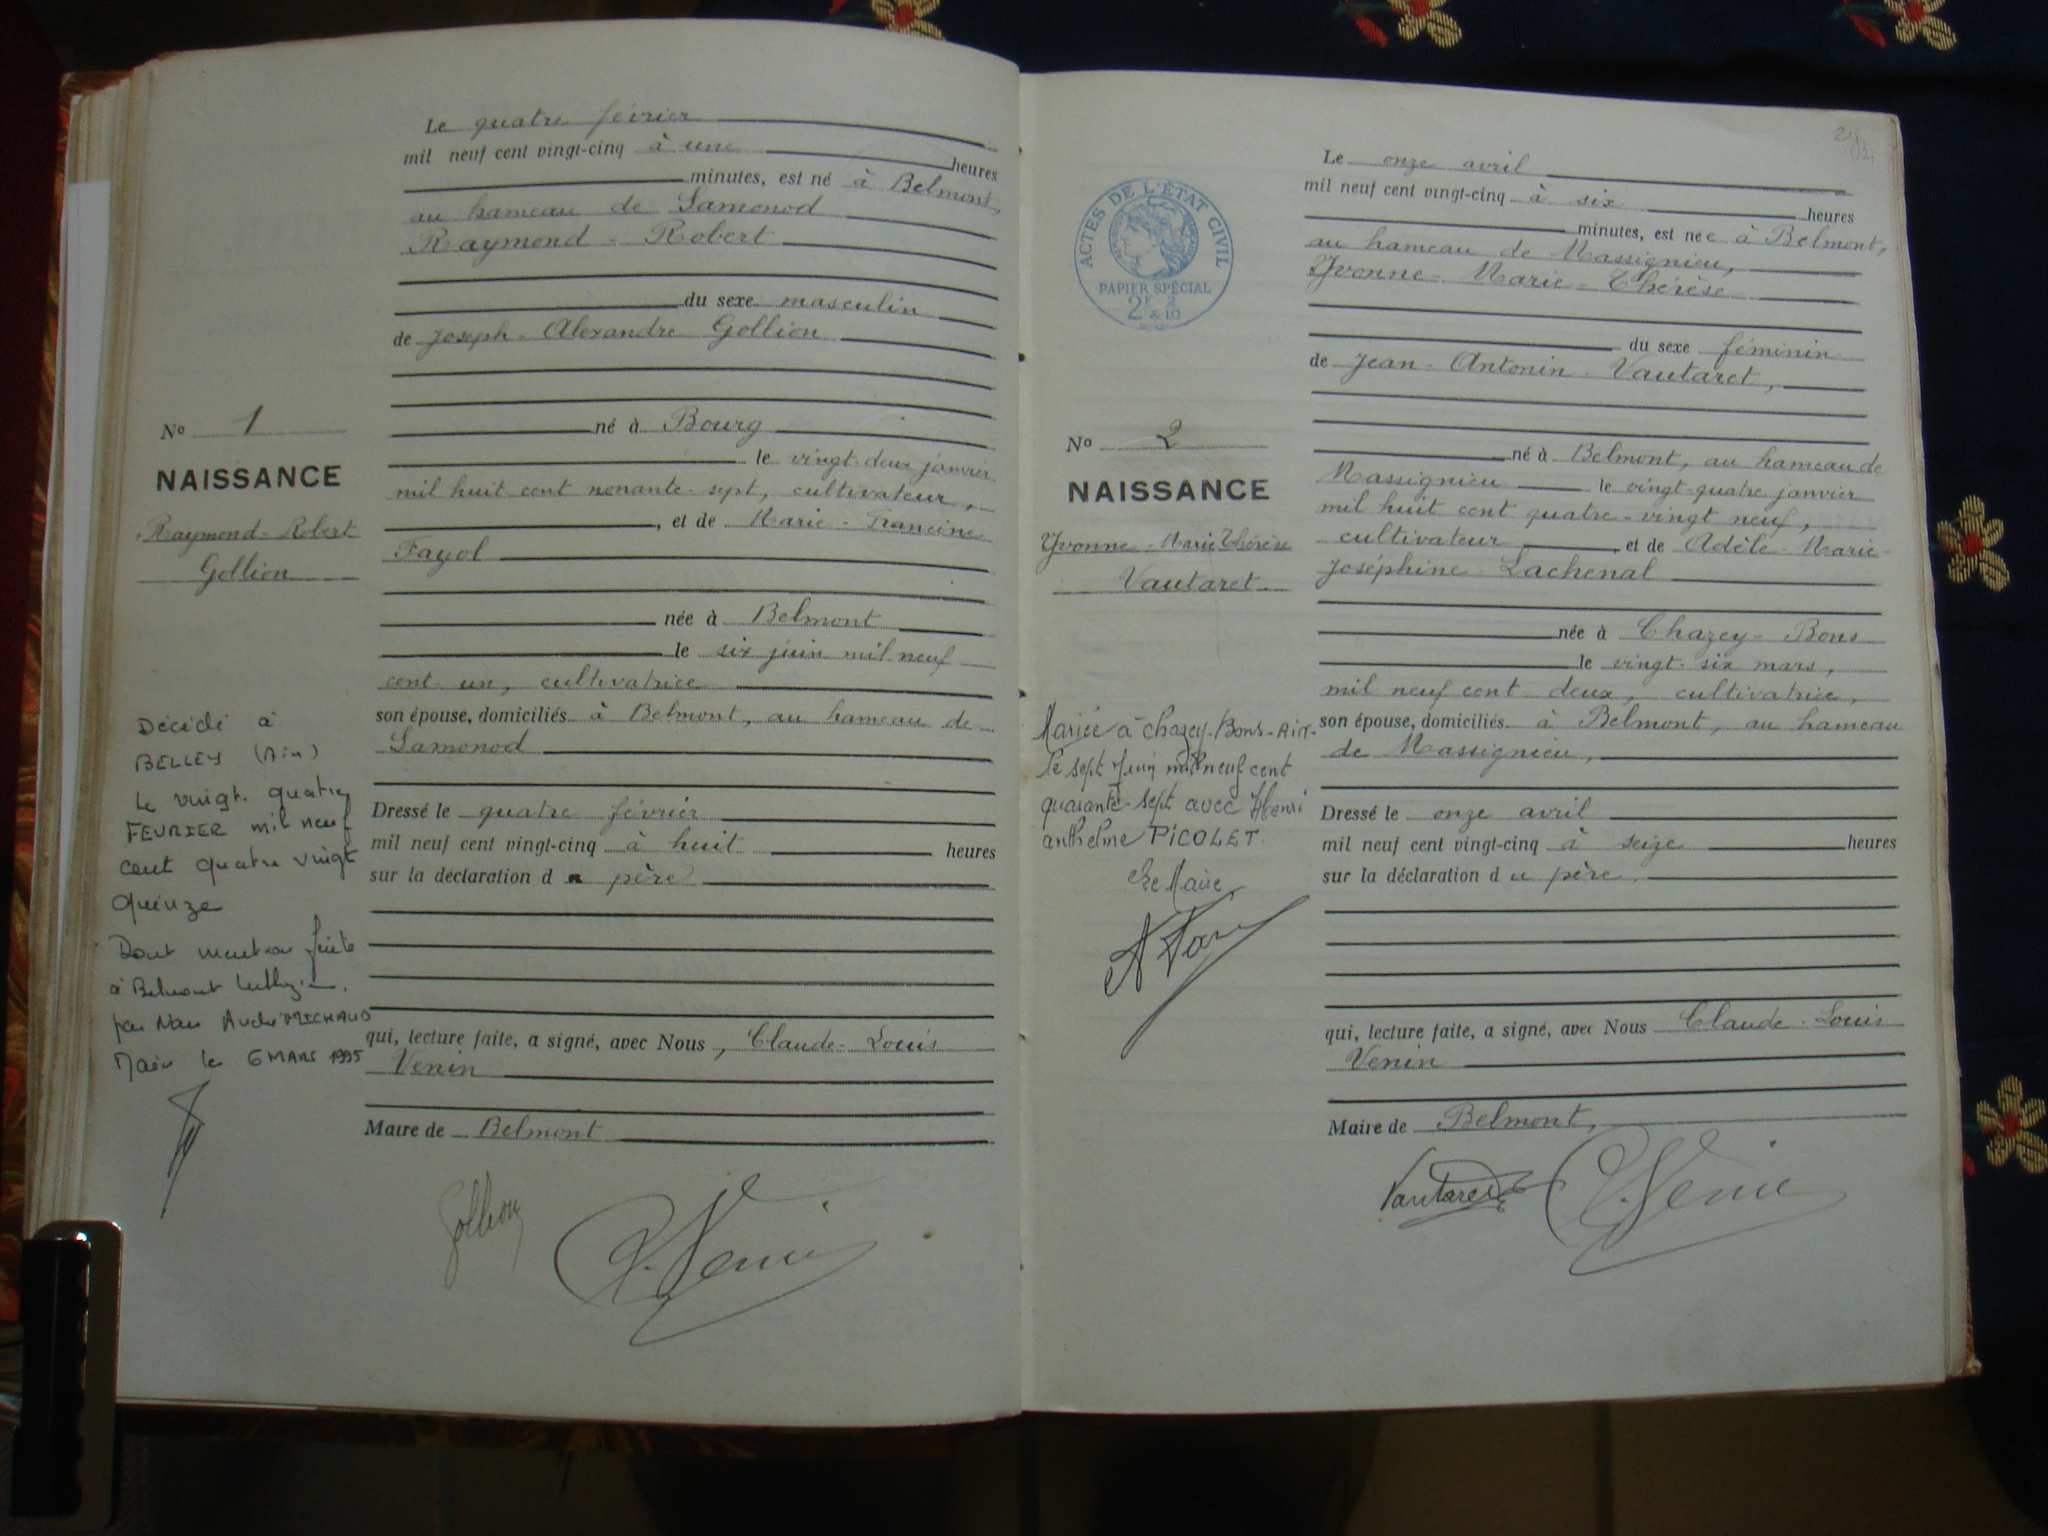 Le quatre février
mil neuf cent vingt-cinq à une heures
minutes, est né à Belmont,
au hameau de Samonod
Raymond - Robert
du sexe masculin
de Joseph - Alexandre Gollion
né à Bourg
le vingt-deux janvier
mil huit cent nonante-sept, cultivateur,
, et de Marie - Francine
Fayol
née à Belmont
le six juin mil neuf
cent un, cultivatrice
son épouse, domiciliés à Belmont, au hameau de
Samonod
Dressé le quatre février
mil neuf cent vingt-cinq à huit heures
sur la déclaration d père
qui, lecture faite, a signé, avec Nous, Claude-Louis
Venin
Maire de Belmont
Gollion
C. Venin
No 1
NAISSANCE
Raymond-Robert
Gollion
Décédé à
BELLEY (Ain)
le vingt quatre
FEVRIER mil neuf
cent quatre vingt
quinze
Dont mention faite
à Belmont
par Nous André MICHAUD
Maire le 6 MARS 1995
ACTES DE L'ÉTAT CIVIL
PAPIER SPÉCIAL
2F 2
& 10
No 2
NAISSANCE
Yvonne - Marie Thérèse
Vautaret
Mariée à Chazey-Bons-Ain-
le sept Juin mil neuf cent
quarante-sept avec Henri
anthelme PICOLET.
Le Maire,
Le onze avril
mil neuf cent vingt-cinq à six heures
minutes, est née à Belmont,
au hameau de Massignieu,
Yvonne - Marie - Thérèse
du sexe féminin
de Jean - Antonin - Vautaret,
né à Belmont, au hameau de
Massignieu le vingt-quatre janvier
mil huit cent quatre-vingt neuf,
cultivateur et de Adèle-Marie-
Joséphine Lachenal
née à Chazey-Bons
le vingt-six mars,
mil neuf cent deux, cultivatrice,
son épouse, domiciliés à Belmont, au hameau
de Massignieu,
Dressé le onze avril
mil neuf cent vingt-cinq à seize heures
sur la déclaration du père.
qui, lecture faite, a signé, avec Nous Claude-Louis
Venin
Maire de Belmont,
Vautaret
C. Venin